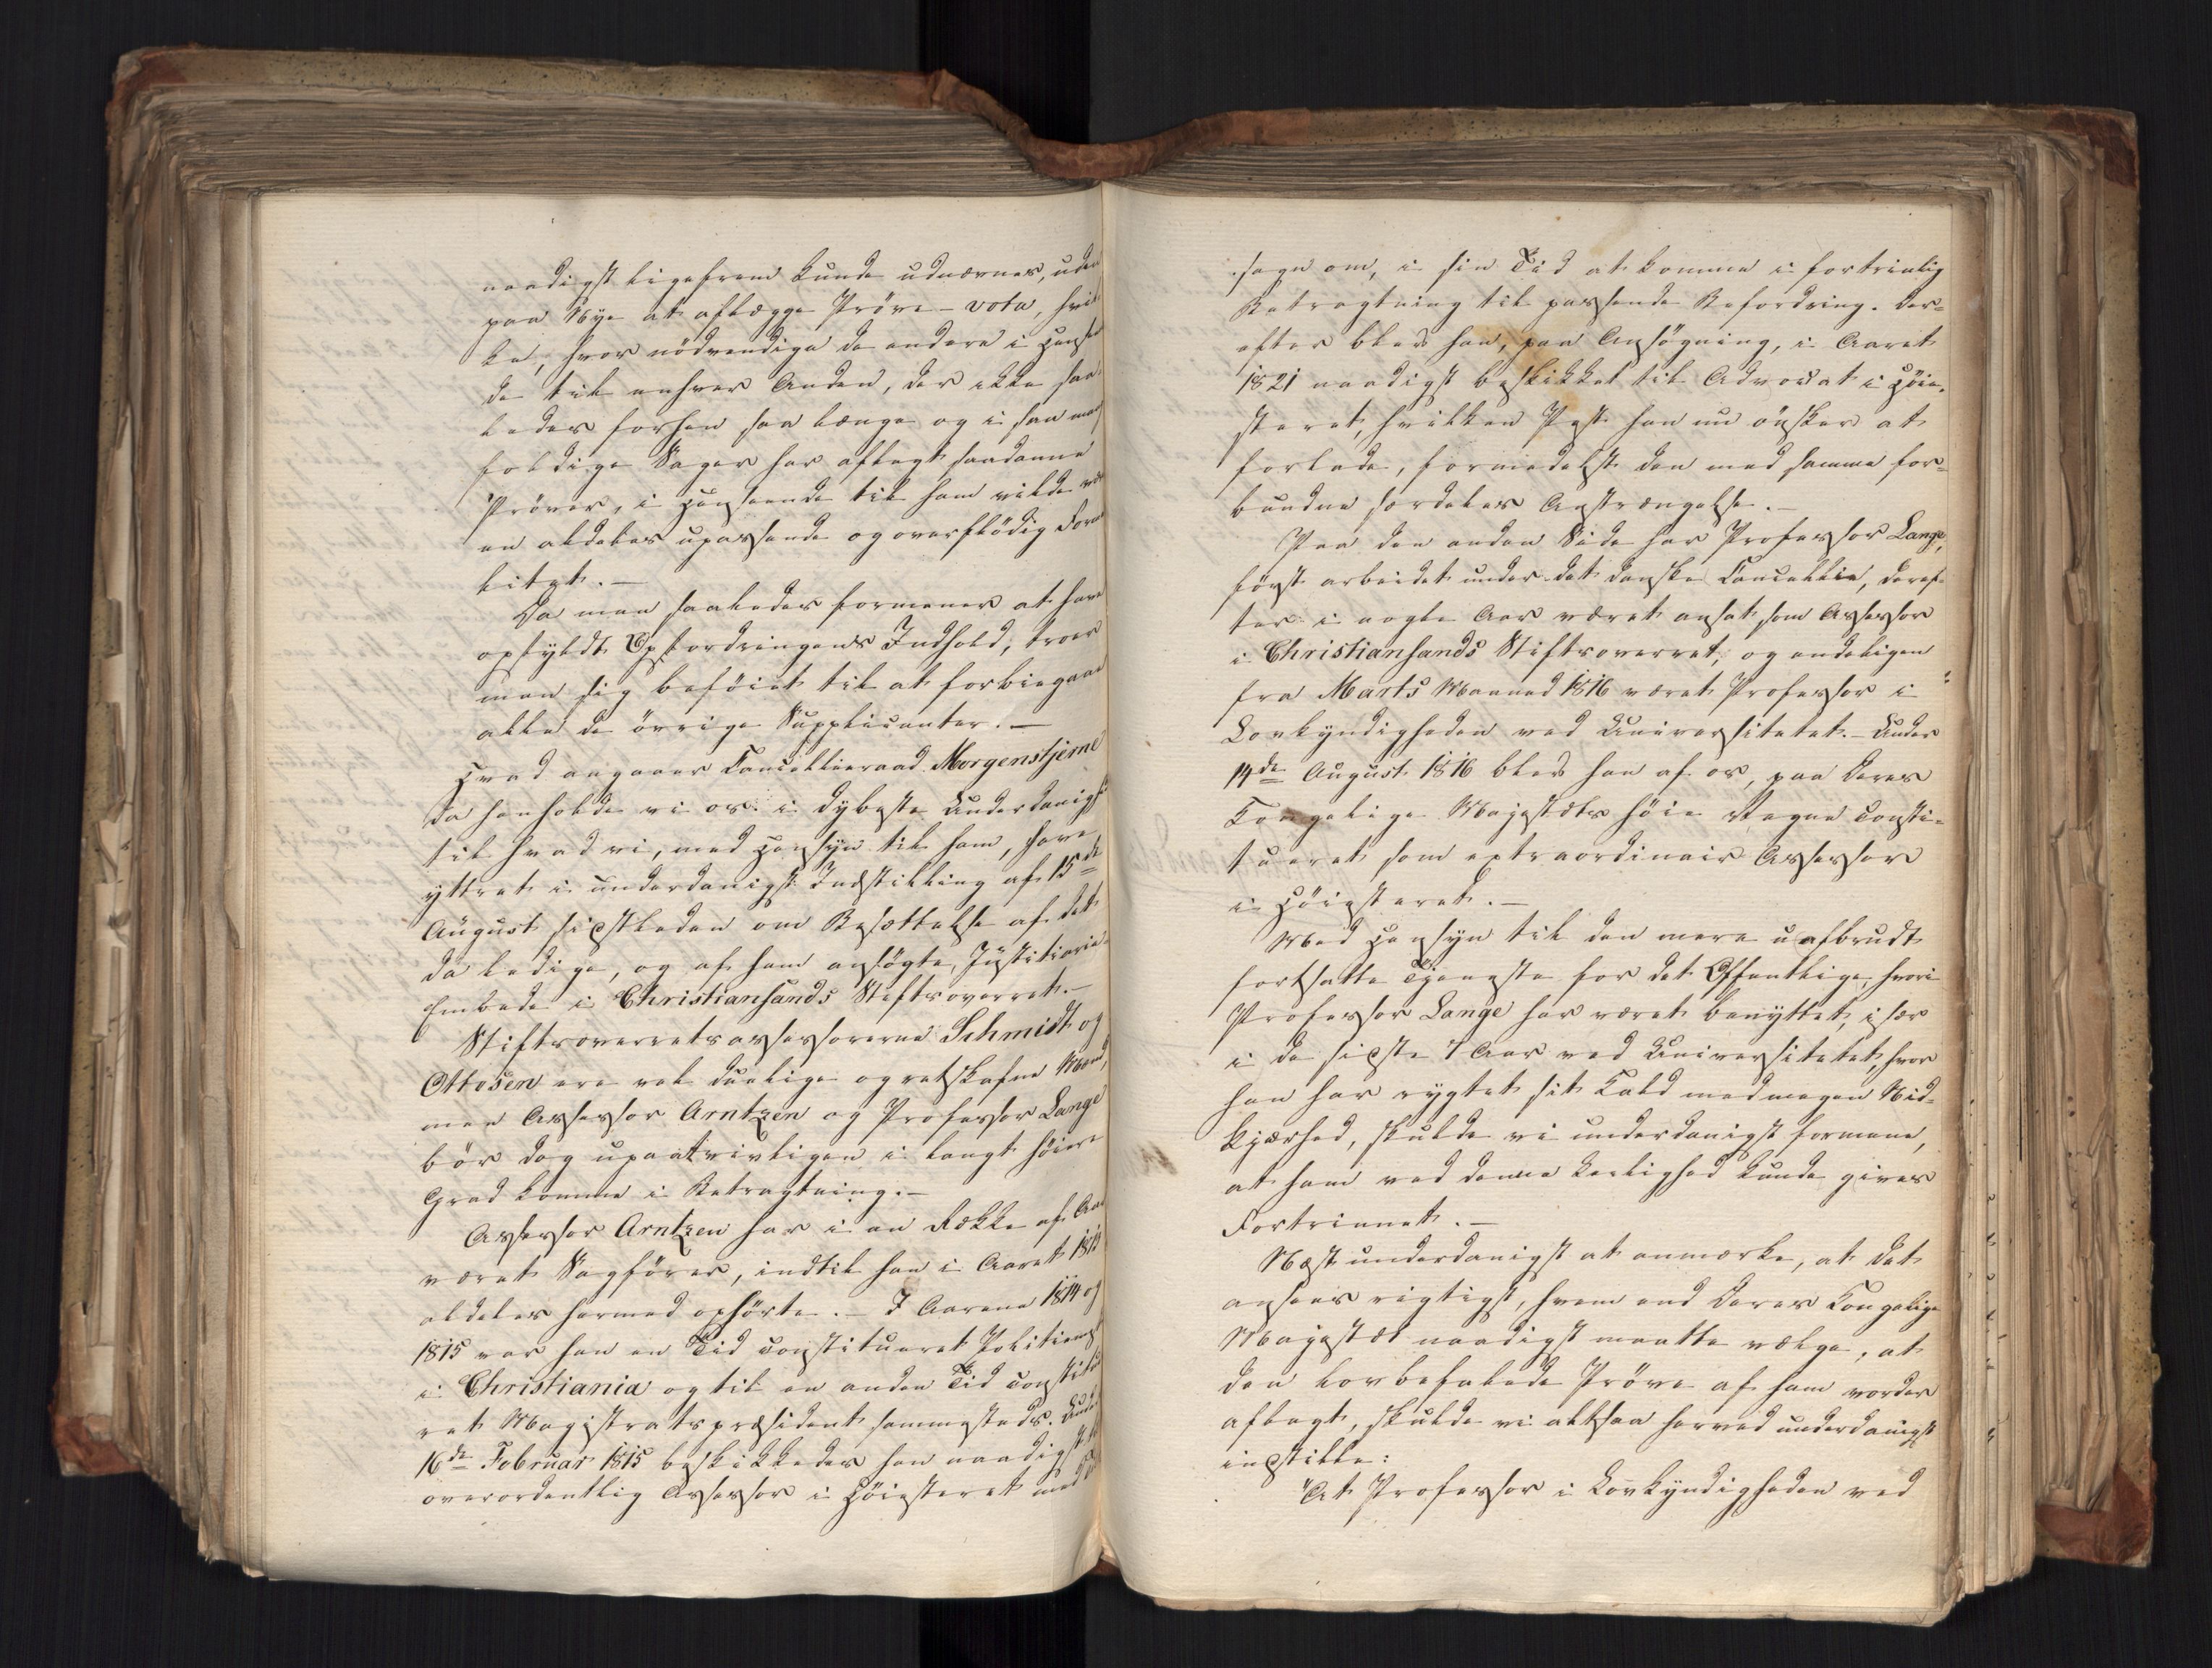 naadigst ligefrem kunde udnævnes, uden
paa Nye at aflægge Prøve-vota, hvil
ke, hvor nödvendige de endere i Hensee
de til enhver Anden, der ikke saa
ledes forhen saa længe og i saa mang
foldige Sager har aflagt saadanne
Pröver, i Henseende til ham vilde være
en aldeles upassende og overflödig Forma
litet.—
Da man saaledes formener at have
opfyldt Opfordringens Indhold, troer
man sig beföiet til at forbiegaae
alle de övrige Supplicanter.—
Hvad angaaer Cancelliraad Morgenstjerne
da henholde vi os i dybeste Underdanighed
til hvad vi, med Hensyn til ham, have
yttret i underdanigst Indstilling af 15de
August sidstleden om Besættelse af det
da ledige, og af ham ansögte Justitiarius
Embede i Christiansands Stiftsoverret.—
Stiftsoverretsassessorerne Schmidt og
Ottosen ere vel duelige og retskafne Mænd,
men Assessor Arntzen og Professor Lange
bör dog upaatvivligen i langt höiere
Grad komme i Betragtning.—
Assessor Arntzen har i en Række af Aar
været Sagförer, indtil han i Aaret 1813
aldeles hermed ophörte.— I Aarene 1814 og
1815 var han en Tid constitueret Politiemester
i Christiania og til en anden Tid constitue
ret Magistratspræsident sammesteds. Under
16de Februar 1815 beskikkedes han naadigst til
overordentlig Assessor i Höiesteret med
sagn om, i sin Tid at komme i fortrinlig
Betragtning til passende Befordring. Der=
efter blev han, paa Ansögning, i Aaret
1821 naadigst beskikket til Advocat i Höie=
steret, hvilken Post han nu önsker at
forlade, formedelst den med samme for=
bundne særdeles Anstrængelse.—
Paa den anden Side har Professor Lange,
först arbeidet under det danske Cancellie, deref=
ter i nogle Aar været ansat som Assessor
i Christiansands Stiftsoverret, og endeligen
fra Marts Maaned 1816 været Professor i
Lovkyndigheden ved Universitetet.— Under
14de August 1816 blev han af os, paa Deres
Kongelige Majestæts höie Vegne consti=
tueret som extraordinair Assessor
i Höiesteret.—
Med Hensyn til den mere uafbrudt
fortsatte Tjeneste for det Offentlige, hvori
Professor Lange har været benyttet, især
i de sidste 7 Aar ved Universitetet, hvor
han har rygtet sit Kald med megen Nid=
kjærhed, skulde vi underdanigst formene,
at ham ved denne Leilighed kunde gives
Fortrinnet.—
Næst underdanigst at anmærke, at det
ansees rigtigst, hvem end Deres Kongelige
Majestæt naadigst maatte vælge, at
den lovbefalede Pröve af ham vorder
aflagt, skulde vi altsaa herved underdanigst
indstille:
"At Professor i Lovkyndigheden ved